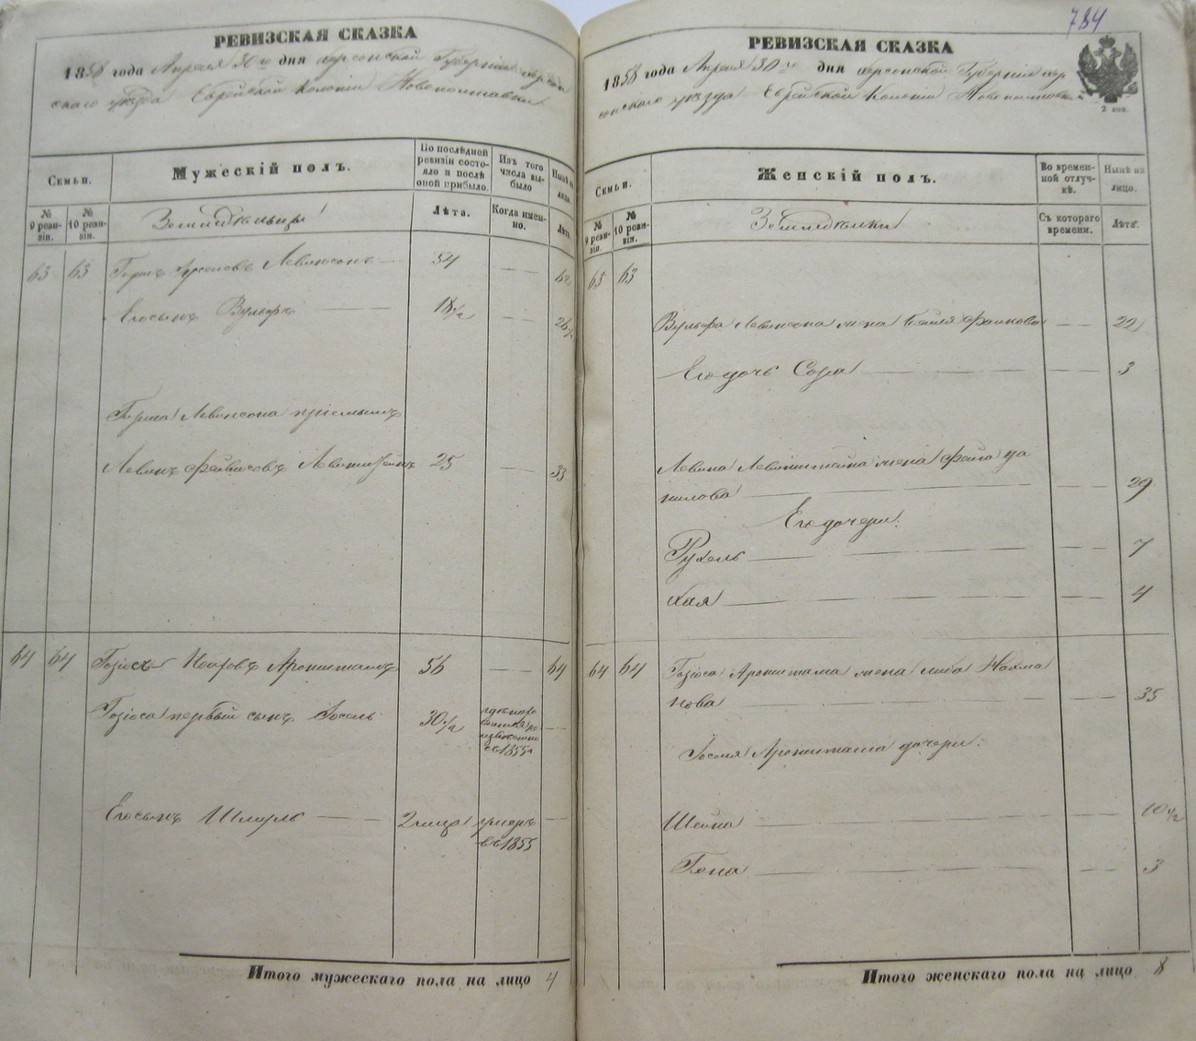 РЕВИЗСКАЯ СКАЗКА
1858 года Апреля 30го дня Херсонской Губернии Херсон
скаго уезда Еврейской Колонии Новополтавки
Семьи.
Мужескій полъ.
По последней ревизіи состояло и после оной прибыло.
Изъ того числа выбыло
Ныне на лицо.
№ 9 ревизіи.
№ 10 ревизіи.
Земледельцы
Лета.
Когда именно.
Лета
63 63 Герш Левинсонъ 54
Его сынъ Вульфъ 18 1/2 26 1/2
Герша Левинсона пріемышъ
Левинъ Файвишовъ Левинштейнъ 25 33
64 64 Аронштамъ 56 64
первый сынъ Іосель 30 1/2
въ 1855
Его сынъ Шмуль умеръ
въ 1855
Итого мужескаго пола на лицо 4
784
РЕВИЗСКАЯ СКАЗКА
1858 года Апреля 30го дня Херсонской Губернии Хер
сонскаго уезда Еврейской Колонии Новополтавки
2 коп.
Семьи.
Женскій полъ.
Во временной отлучке.
Ныне на лицо.
№ 9 ревизіи.
№ 10 ревизіи.
Земледелки
Съ котораго времени.
Лета.
63 63
Вульфа Левинсона жена 22
Его дочь Сора 3
Левина Левинштейна жена Фейга Да
нилова 29
Его дочери:
Рухель 7
Хая 4
64 64 Аронштама жена Либа Нахма
нова 35
Іоселя Аронштама дочери:
Шейна 10 1/2
Гена 3
Итого женскаго пола на лицо 8